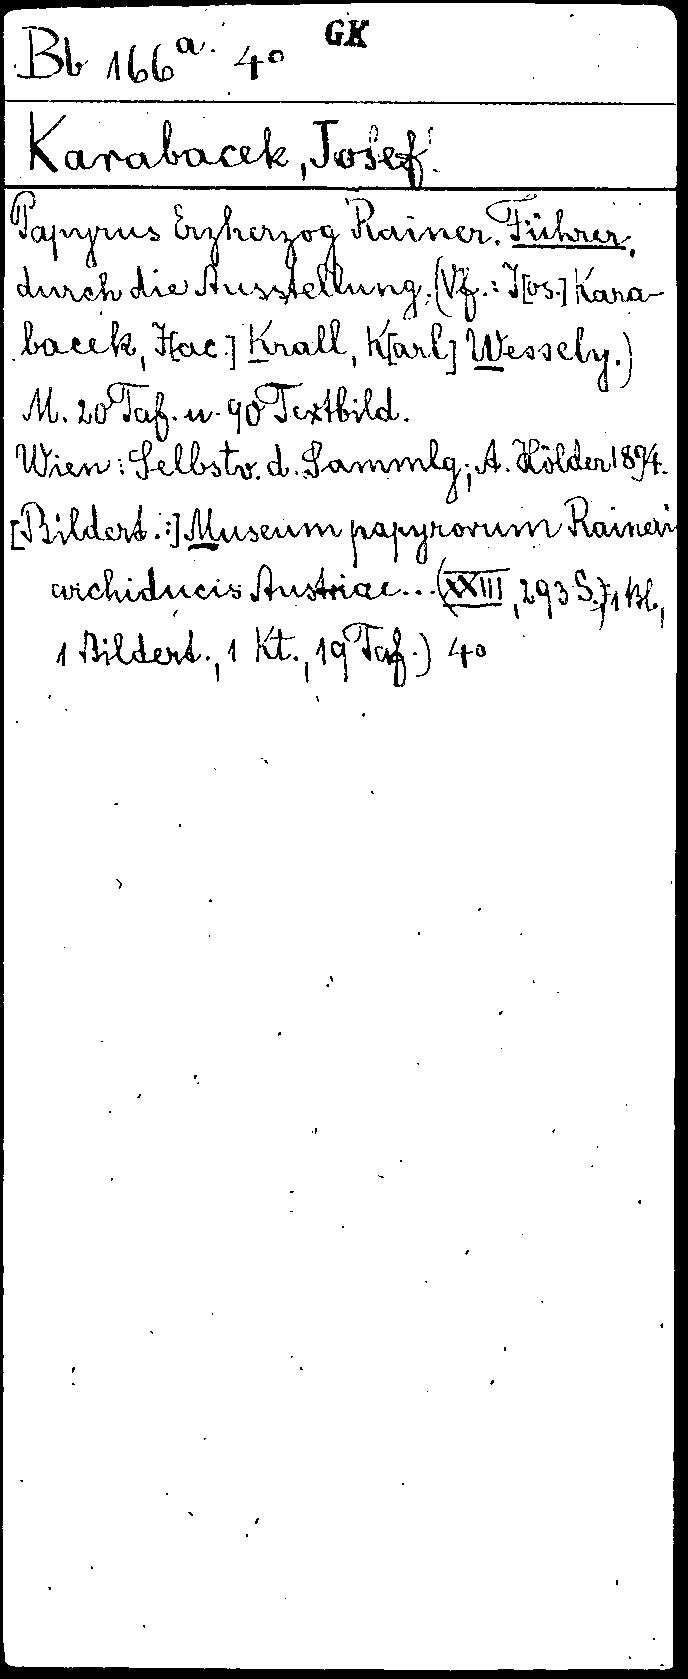 Bb 166a. 4° GK
Karabacek, Josef.
Papyrus Erzherzog Rainer. Führer
durch die Ausstellung. (Vf.: J[os.] Kara-
bacek, J[ac.] Krall, K[arl] Wessely.)
M. 20 Taf. u. 90 Textbild.
Wien: Selbstv. d. Sammlg; A. Hölder 1894.
[Bildert.:] Museum papyrorum Raineri
archiducis Austriae... (XXIII, 293 S., 1 Bl.,
1 Bildert., 1 Kt., 19 Taf.) 4°